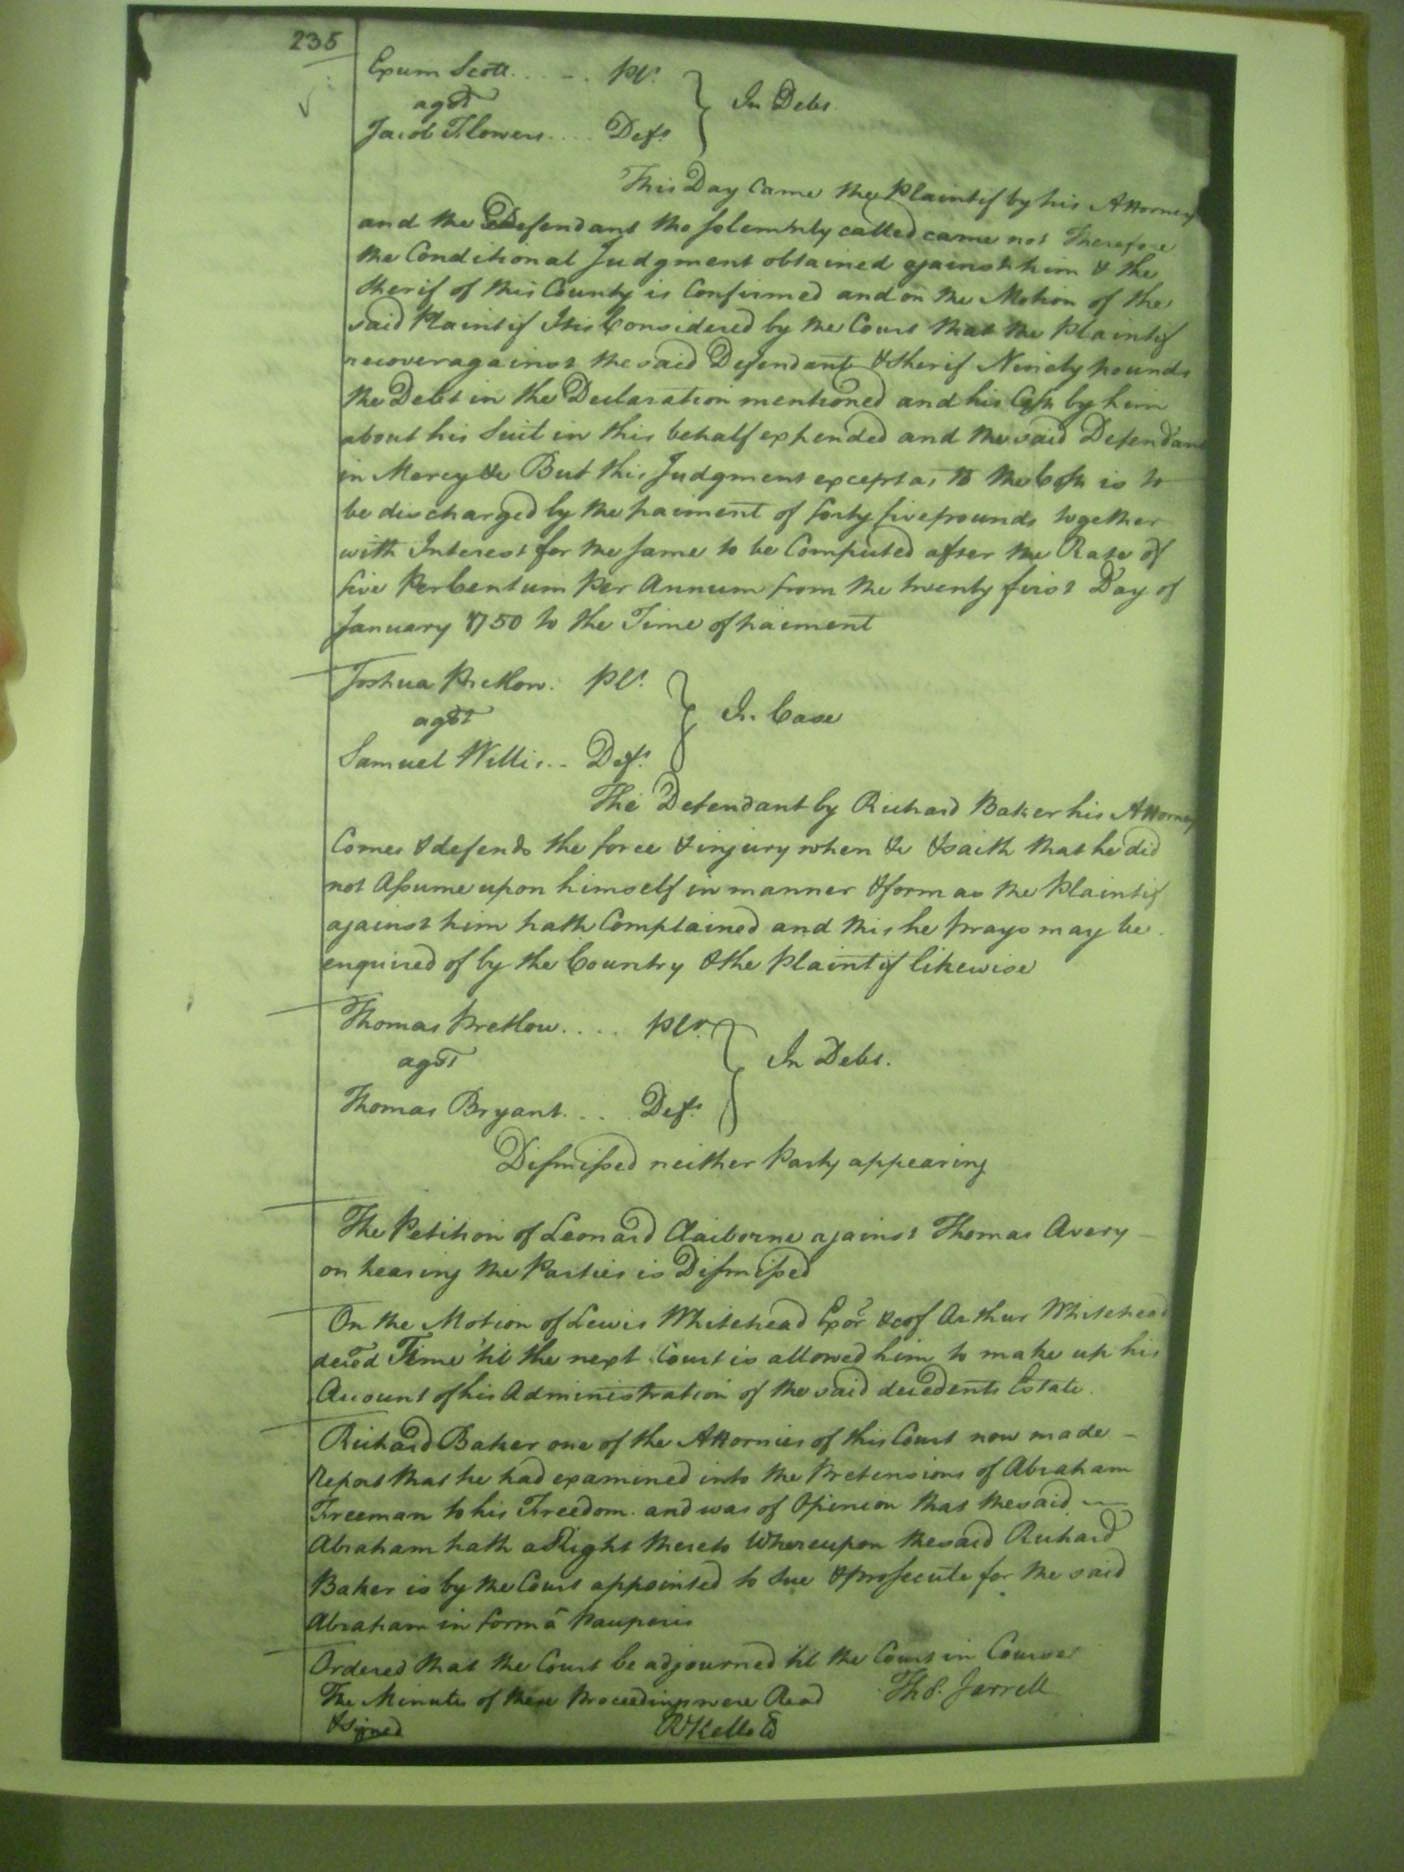 235
Exum Scott . . . - . Plt.
agst
Jacob Flowers . . . . Deft.
In Debt.
This Day Came the Plaintif by his Attorney
and the Defendant tho solemnly called came not Therefore
the Conditional Judgment obtained against him & the
Sherif of this County is Confirmed and on the Motion of the
said Plaintif It is Considered by the Court that the Plaintif
recover against the said Defendant & Sherif Ninety pounds
the Debt in the Declaration mentioned and his Costs by him
about his Suit in this behalf expended and the said Defendant
in Mercy &c But this Judgment except as to the Costs is to
be discharged by the paiment of forty five pounds together
with Interest for the same to be Computed after the Rate of
five Per Centum Per Annum from the twenty first Day of
January 1750 to the Time of paiment
Joshua Pretlow . Plt.
agst
Samuel Willis . . Deft.
In Case
The Defendant by Richard Baker his Attorney
Comes & defends the force & injury when &c & saith that he did
not Assume upon himself in manner & form as the Plaintif
against him hath Complained and this he prays may be
enquired of by the Country & the Plaintif likewise
Thomas Pretlow . . . . Plt.
agst
Thomas Bryant . . . Deft.
In Debt.
Dismissed neither Party appearing
The Petition of Leonard Claiborne against Thomas Avery
on hearing the Parties is Dismissed
On the Motion of Lewis Whitehead Exor. &c of Arthur Whitehead
deced Time 'til the next Court is allowed him to make up his
Account of his Administration of the said decedents Estate.
Richard Baker one of the Attornies of this Court now made
Report that he had examined into the Pretensions of Abraham
Freeman to his Freedom and was of Opinion that the said
Abraham hath a Right thereto Whereupon the said Richard
Baker is by the Court appointed to Sue & prosecute for the said
Abraham in formâ pauperis
Ordered that the Court be adjourned 'til the Court in Course
The Minutes of these Proceedings were Read Ths. Jarrell
& signed
R Kello